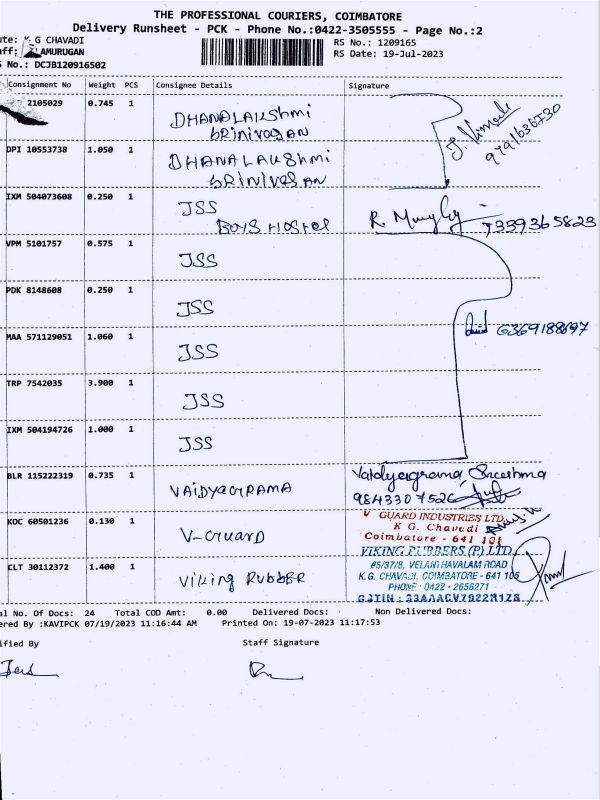 THE PROFESSIONAL COURIERS, COIMBATORE
Delivery Runsheet - PCK - Phone No.:0422-3505555 - Page No.:2
ute: K G CHAVADI
RS No.: 1209165
aff: AMURUGAN
RS Date: 19-Jul-2023
S No.: DCJB120916502
Consignment No Weight PCS Consignee Details Signature
2105029 0.745 1 DHANALAKSHMI
SRINIVASAN
9791636730
DPI 10553738 1.050 1 DHANALAKSHMI
SRINIVASAN
IXM 504073608 0.250 1 JSS
BOYS HOSTEL
7339365823
VPM 5101757 0.575 1 JSS
PDK 8148608 0.250 1 JSS
MAA 571129051 1.060 1 JSS
TRP 7542035 3.900 1 JSS
IXM 504194726 1.000 1 JSS
BLR 115222319 0.735 1 VAIDYAGRAMA
9843307526
KOC 60501236 0.130 1 V-GUARD
V GUARD INDUSTRIES LTD.
K G. Chavadi
Coimbatore - 641 105
CLT 30112372 1.400 1 VIKING RUBBER
VIKING RUBBERS (P) LTD.
#5/37/8, VELANTHAVALAM ROAD
K.G. CHAVADI, COIMBATORE - 641 105
PHONE : 0422 - 2656271
al No. Of Docs: 24 Total COD Amt: 0.00 Delivered Docs: Non Delivered Docs:
ered By :KAVIPCK 07/19/2023 11:16:44 AM Printed On: 19-07-2023 11:17:53
ified By Staff Signature